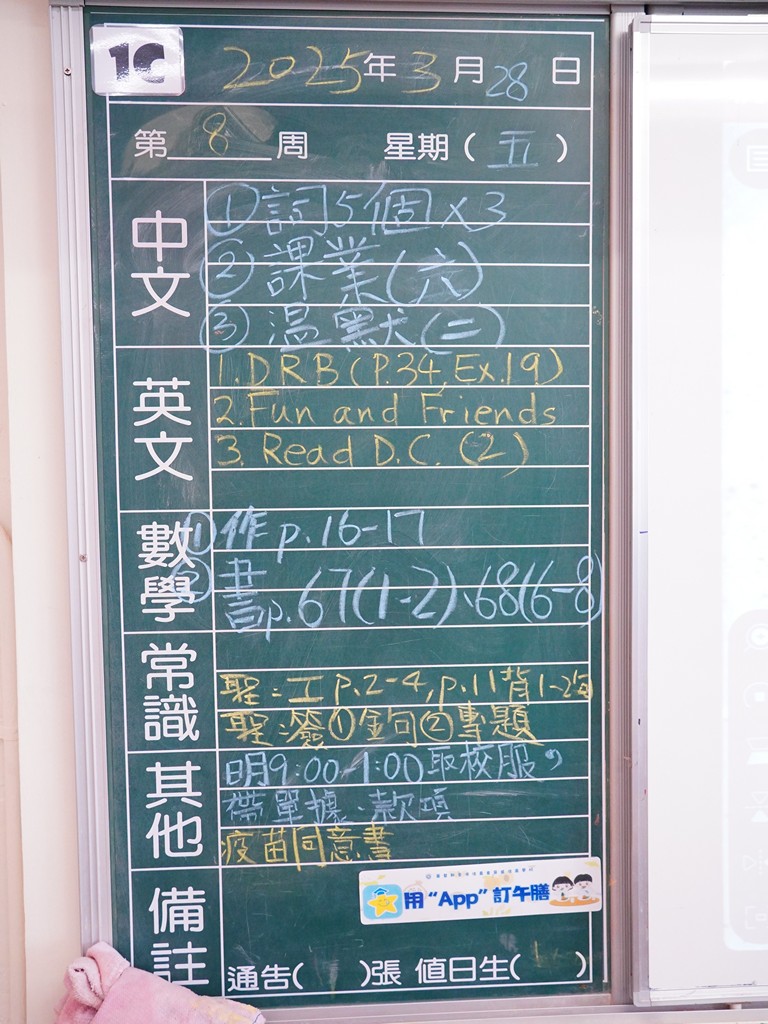 1C
2025年3月28日
第8周 星期(五)
中文
①詞5個×3
②課業(六)
③溫默(二)
英文
1. DRB (P.34, Ex.19)
2. Fun and Friends
3. Read D.C. (2)
數學
①作p.16-17
②書p.67(1-2)、68(6-8)
常識
聖:工p.2-4,p.11背1-2句
聖:簽①金句②專題
其他
明9:00-1:00取校服,
帶單據、款項
疫苗同意書
備註
用“App”訂午膳
通告( )張 值日生( )